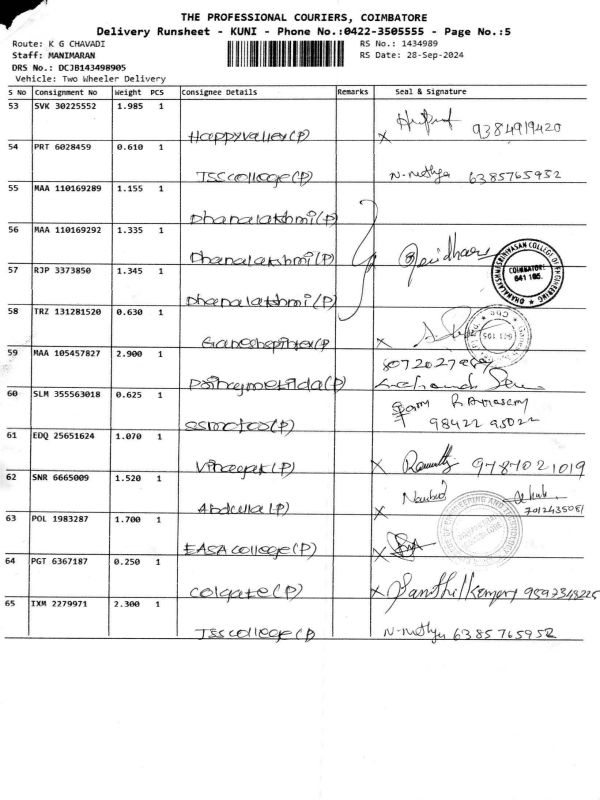 THE PROFESSIONAL COURIERS, COIMBATORE
Delivery Runsheet - KUNI - Phone No.:0422-3505555 - Page No.:5
Route: K G CHAVADI RS No.: 1434989
Staff: MANIMARAN RS Date: 28-Sep-2024
DRS No.: DCJB143498905
Vehicle: Two Wheeler Delivery
S No Consignment No Weight PCS Consignee Details Remarks Seal & Signature
53 SVK 30225552 1.985 1
Happyvalley(P) X 9384919420
54 PRT 6028459 0.610 1
JSS college(P) N-Nethya 6385765952
55 MAA 110169289 1.155 1
Dhanalakhmi(P)
56 MAA 110169292 1.335 1
Dhanalakhmi(P)
DHANALAKSHMI SRINIVASAN COLLEGE OF ENGINEERING COIMBATORE 641 105.
57 RJP 3373850 1.345 1
Dhanalakhmi(P)
58 TRZ 131281520 0.630 1
(P) X
59 MAA 105457827 2.900 1
(P)
60 SLM 355563018 0.625 1
(P) 98422 95022
61 EDQ 25651624 1.070 1
Vinayak(P) X 9787021019
62 SNR 6665009 1.520 1
Abdulla(P) X 7012435081
63 POL 1983287 1.700 1
EASA college(P) X
64 PGT 6367187 0.250 1
Colgate(P) X Santhilkumar
65 IXM 2279971 2.300 1
JSS college(P) N-Nethya 6385765952